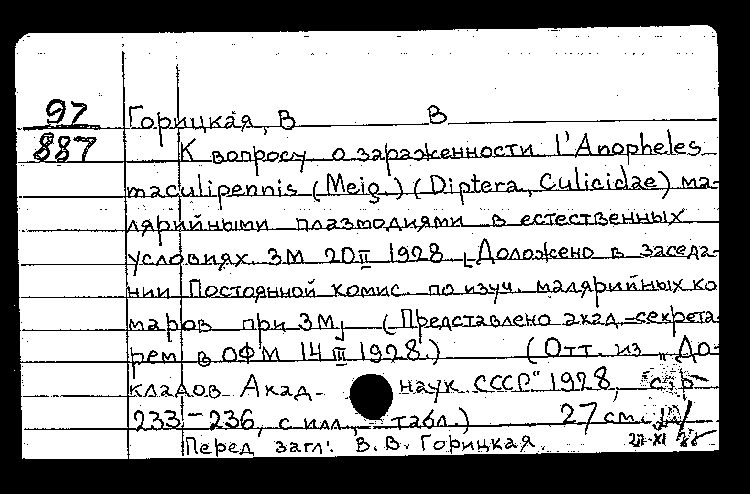 97 Горицкая, В В
887 К вопросу о зараженности l'Anopheles
maculipennis (Meig.) (Diptera, Culicidae) ма-
лярийными плазмодиями в естественных
условиях. ЗМ 20 II 1928 [Доложено в заседа-
нии Постоянной комис. по изуч. малярийных ко
маров при ЗМ] (Представлено акад.-секрета-
рем в ОФМ 14 III 1928.) (Отт. из „До-
кладов Акад. наук СССР" 1928, стр-
233-236, с илл., табл.) 27 см.
Перед загл: В.В. Горицкая.